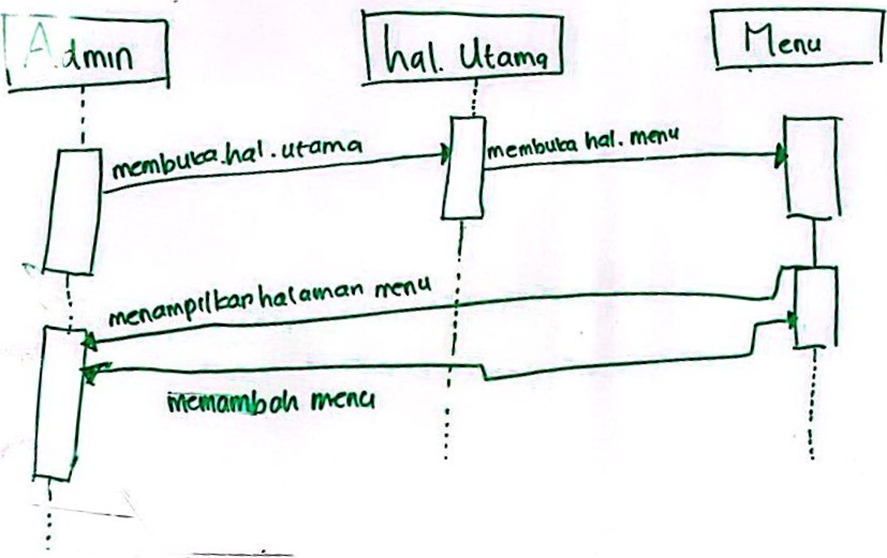 Admin
hal. Utama
Menu
membuka.hal.utama
membuka hal. menu
menampilkan halaman menu
memamboh menu